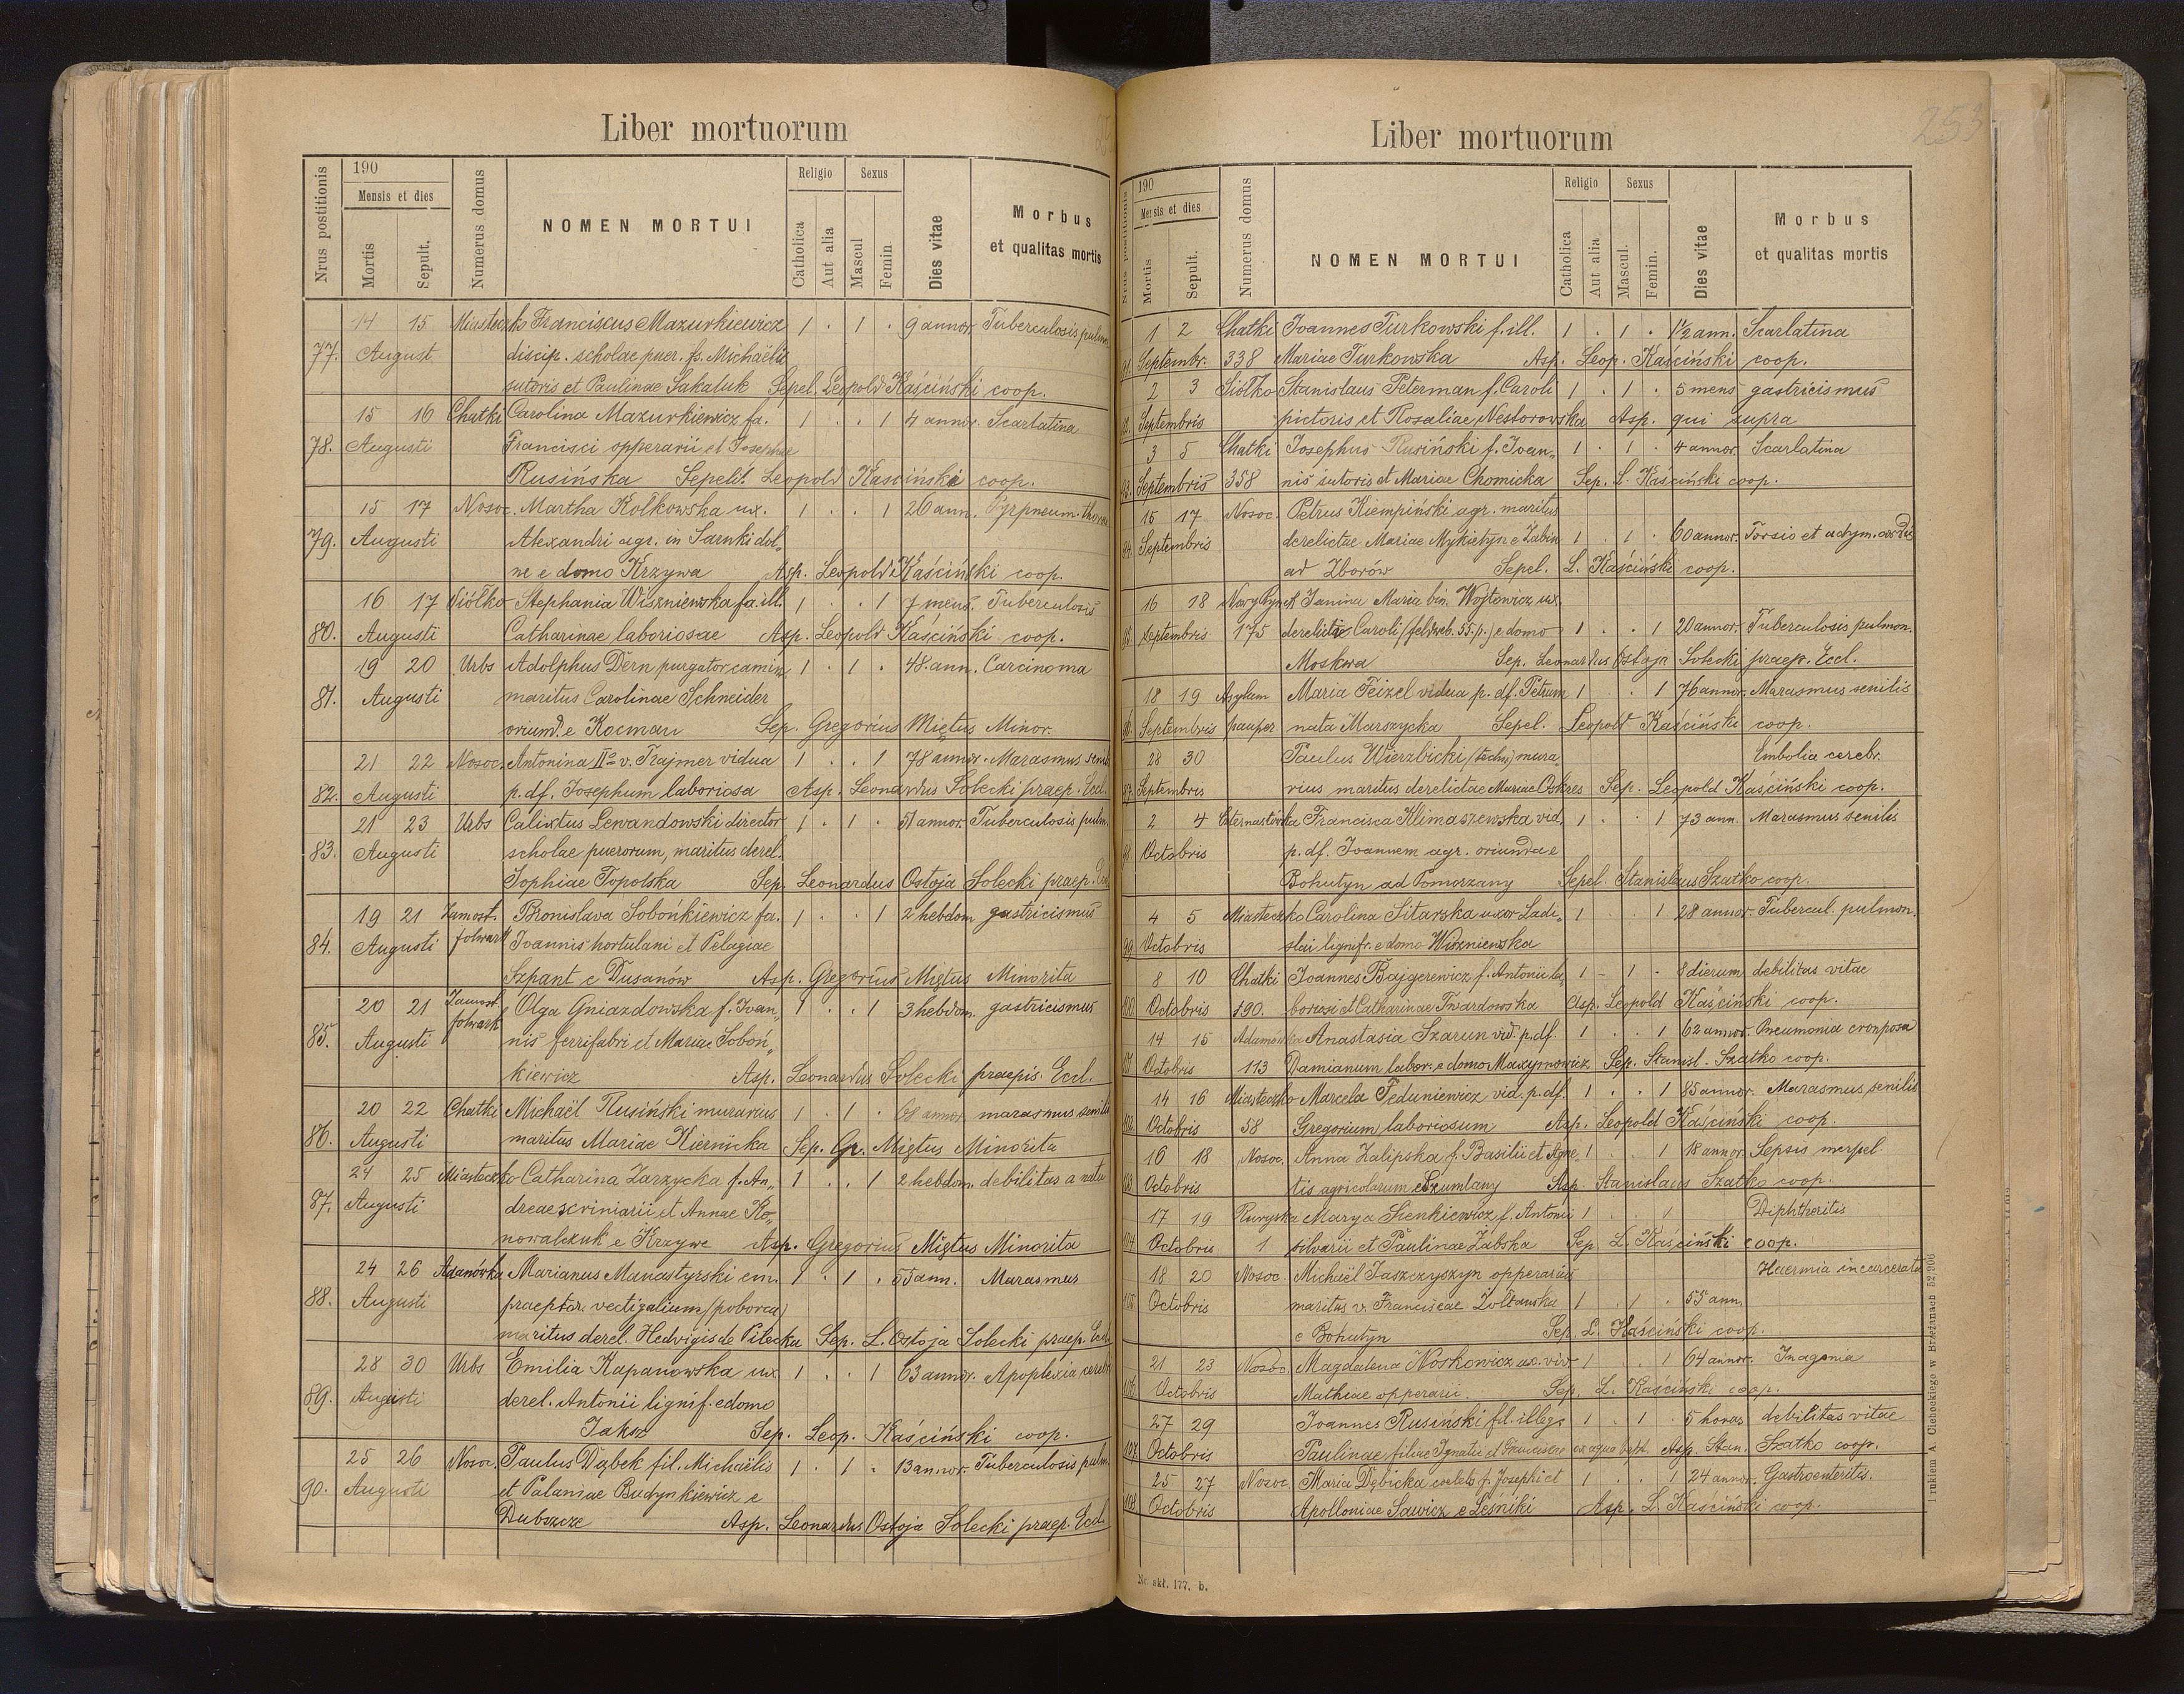 Liber mortuorum
Nrus postitionis
190
Mensis et dies
Mortis
Sepult.
Numerus domus
NOMEN MORTUI
Religio
Catholica
Aut alia
Sexus
Mascul
Femin
Dies vitae
Morbus
et qualitas mortis
14 15 Miasteczko Franciscus Mazurkiewicz 1 . 1 . 9 annor. Tuberculosis pulmon
77. August discip. scholae puer. fs. Michaëlis
sutoris et Paulinae Sakaluk Sepel. Leopold Kaściński coop.
15 16 Chatki Carolina Mazurkiewicz fa. 1 . . 1 4 annor. Scarlatina
78. Augusti Francisci opperarii et Josephae
Rusińska Sepelit Leopold Kaściński coop.
15 17 Nosoc. Martha Kolkowska ux. 1 . . 1 26 ann. Pyrpneum.
79. Augusti Alexandri agr. in Sarnki dol„
ne e domo Krzywa Asp. Leopold Kaściński coop.
16 17 Siółko Stephania Wiszniewska fa. ill. 1 . . 1 7 mens. Tuberculosis
80. Augusti Catharinae laboriosae Asp. Leopold Kaściński coop.
19 20 Urbs Adolphus Dern purgator camin. 1 . 1 . 48. ann. Carcinoma
81. Augusti maritus Carolinae Schneider
oriund. e Kocman Sep. Gregorius Miętus Minor.
21 22 Nosoc. Antonina IIo v. Trajmer vidua 1 . . 1 78 annor. Marasmus senil
82. Augusti p. df. Josephum laboriosa Asp. Leonardus Solecki praep. Eccl.
21 23 Urbs Calixtus Lewandowski director 1 . 1 . 51 annor. Tuberculosis pulm.
83. Augusti scholae puerorum, maritus derel.
Sophiae Topolska Sep. Leonardus Ostoja Solecki praep. Eccl
19 21 Zamost. Bronislava Sobońkiewicz fa. 1 . . 1 2 hebdom. gastricismus
84. Augusti folwark Joannis hortulani et Pelagiae
Szpant e Dusanów Asp. Gregorius Miętus Minorita
20 21 Zamost. Olga Gniazdowska f. Joan„ 1 . . 1 3 hebdom. gastricismus
folwark
85. Augusti nis ferrifabri et Mariae Soboń„
kiewicz Asp. Leonardus Solecki praepis. Eccl.
20 22 Chatki Michaël Rusiński murarius 1 . 1 . 68 annor. marasmus senilis
86. Augusti maritus Mariae Kiernicka Sep. Gr. Miętus Minorita
24 25 Miasteczko Catharina Zarzycka f. An„ 1 . . 1 2 hebdom. debilitas a natu
87. Augusti dreae scriniarii et Annae Ko„
nowalczuk e Krzywe Asp. Gregorius Miętus Minorita
24 26 Adamówka Marianus Manastyrski em. 1 . 1 . 55 ann. Marasmus
88. Augusti praeptor. vectigalium (poborca)
maritus derel. Hedvigis de Pilecka Sep. L. Ostoja Solecki praep. Eccl
28 30 Urbs Emilia Kapanowska ux. 1 . . 1 63 annor. Apoplexia cereb
89. Augusti derel. Antonii lignif. e domo
Jaksz Sep. Leop. Kaściński coop.
25 26 Nosoc. Paulus Dąbek fil. Michaëlis 1 . 1 . 13 annor. Tuberculosis pulm.
90. Augusti et Palamae Budynkiewicz e
Dubszcze Asp. Leonardus Ostoja Solecki praep. Eccl.
253
Liber mortuorum
Nrus postitionis
190
Mensis et dies
Mortis
Sepult.
Numerus domus
NOMEN MORTUI
Religio
Catholica
Aut alia
Sexus
Mascul.
Femin.
Dies vitae
Morbus
et qualitas mortis
1 2 Chatki Joannes Turkowski f. ill. 1 . 1 . 1½ ann. Scarlatina
Septembr. 338 Mariae Turkowska Asp. Leop. Kaściński coop.
2 3 Siółko Stanislaus Peterman f. Caroli 1 . 1 . 5 mens gastricismus
Septembris pictoris et Rosaliae Nestorowska Asp. qui supra
3 5 Chatki Josephus Rusiński f. Joan„ 1 . 1 . 4 annor. Scarlatina
Septembris 358 nis sutoris et Mariae Chomicka Sep. L. Kaściński coop.
15 17 Nosoc. Petrus Kiempiński agr. maritus
Septembris derelictae Mariae Mykietyn e Zabin 1 . 1 . 60 annor. Torsio et adym. cordis
ad Zborów Sepel. L. Kaściński coop.
16 18 Nowy Rynek Janina Maria bin. Wojtowicz ux.
Septembris 175 derelictae Caroli (feldweb. 55. p.) e domo 1 . . 1 20 annor. Tuberculosis pulmon.
Moskwa Sep. Leonardus Ostoja Solecki praep. Eccl.
18 19 Asylum Maria Feizel vidua p. df. Petrum 1 . . 1 76 annor. Marasmus senilis
Septembris pauper. nata Marszycka Sepel. Leopold Kaściński coop.
28 30 Paulus Wierzbicki (techn) mura„ Embolia cerebr.
Septembris rius maritus derelictae Mariae Oskres Sep. Leopold Kaściński coop.
2 4 Francisca Klimaszewska vid. 1 . . 1 73 ann. Marasmus senilis
Octobris p. df. Joannem agr. oriunda e
Bohutyn ad Pomorzany Sepel. Stanislaus Szatko coop.
4 5 Miasteczko Carolina Sitarska uxor Ladi„ 1 . . 1 28 annor. Tubercul. pulmon.
99. Octobris slai lignifr. e domo Wiszniewska
8 10 Chatki Joannes Bajgerewicz f. Antonii la„ 1 - 1 . 8 dierum debilitas vitae
100 Octobris 190. boriosi et Catharinae Twardowska Asp. Leopold Kaściński coop.
14 15 Adamówka Anastasia Szarun vid. p. df. 1 . . 1 62 annor. Pneumonia cronposa
Octobris 113 Damianum labor. e domo Maxymowicz Sep. Stanisl. Szatko coop.
14 16 Miasteczko Marcela Feduniewicz vid. p. df. 1 . . 1 85 annor. Marasmus senilis
102. Octobris 58 Gregorium laboriosum Asp. Leopold Kaściński coop.
16 18 Nosoc. Anna Zalipska f. Basilii et Agne„ 1 . . 1 18 annor. Sepsis
103. Octobris tis agricolarum e Szumlany Asp. Stanislaus Szatko coop.
17 19 Ruryska Marya Sienkiewicz f. Antonii 1 . . 1 Diphtheritis
104 Octobris 1 silvarii et Paulinae Żabska Sep. L. Kaściński coop.
18 20 Nosoc. Michaël Jaszczyszyn opperarius Haermia incarcerata
105. Octobris maritus v. Franciscae Żołtawska 1 . 1 . 55 ann.
e Bohutyn Sep. L. Kaściński coop.
21 23 Nosoc. Magdalena Noskowicz ux. viv. 1 . . 1 64 annor. Inagonia
106. Octobris Mathiae opperarii Sep. L. Kaściński coop.
27 29 Joannes Rusiński fil. illeg. 1 . 1 . 5 horas debilitas vitae
107. Octobris Paulinae filiae Ignatii et Franciscae ex aqua bapt. Asp. Stan. Szatko coop.
25 27 Nosoc. Maria Dębicka coelebs f. Josephi et 1 . . 1 24 annor. Gastroenteritis.
108. Octobris Apolloniae Sawicz e Leśniki Asp. L. Kaściński coop.
Drukiem A. Cichockiego w Brzeżanach 52/906
Nr. skł. 177. b.